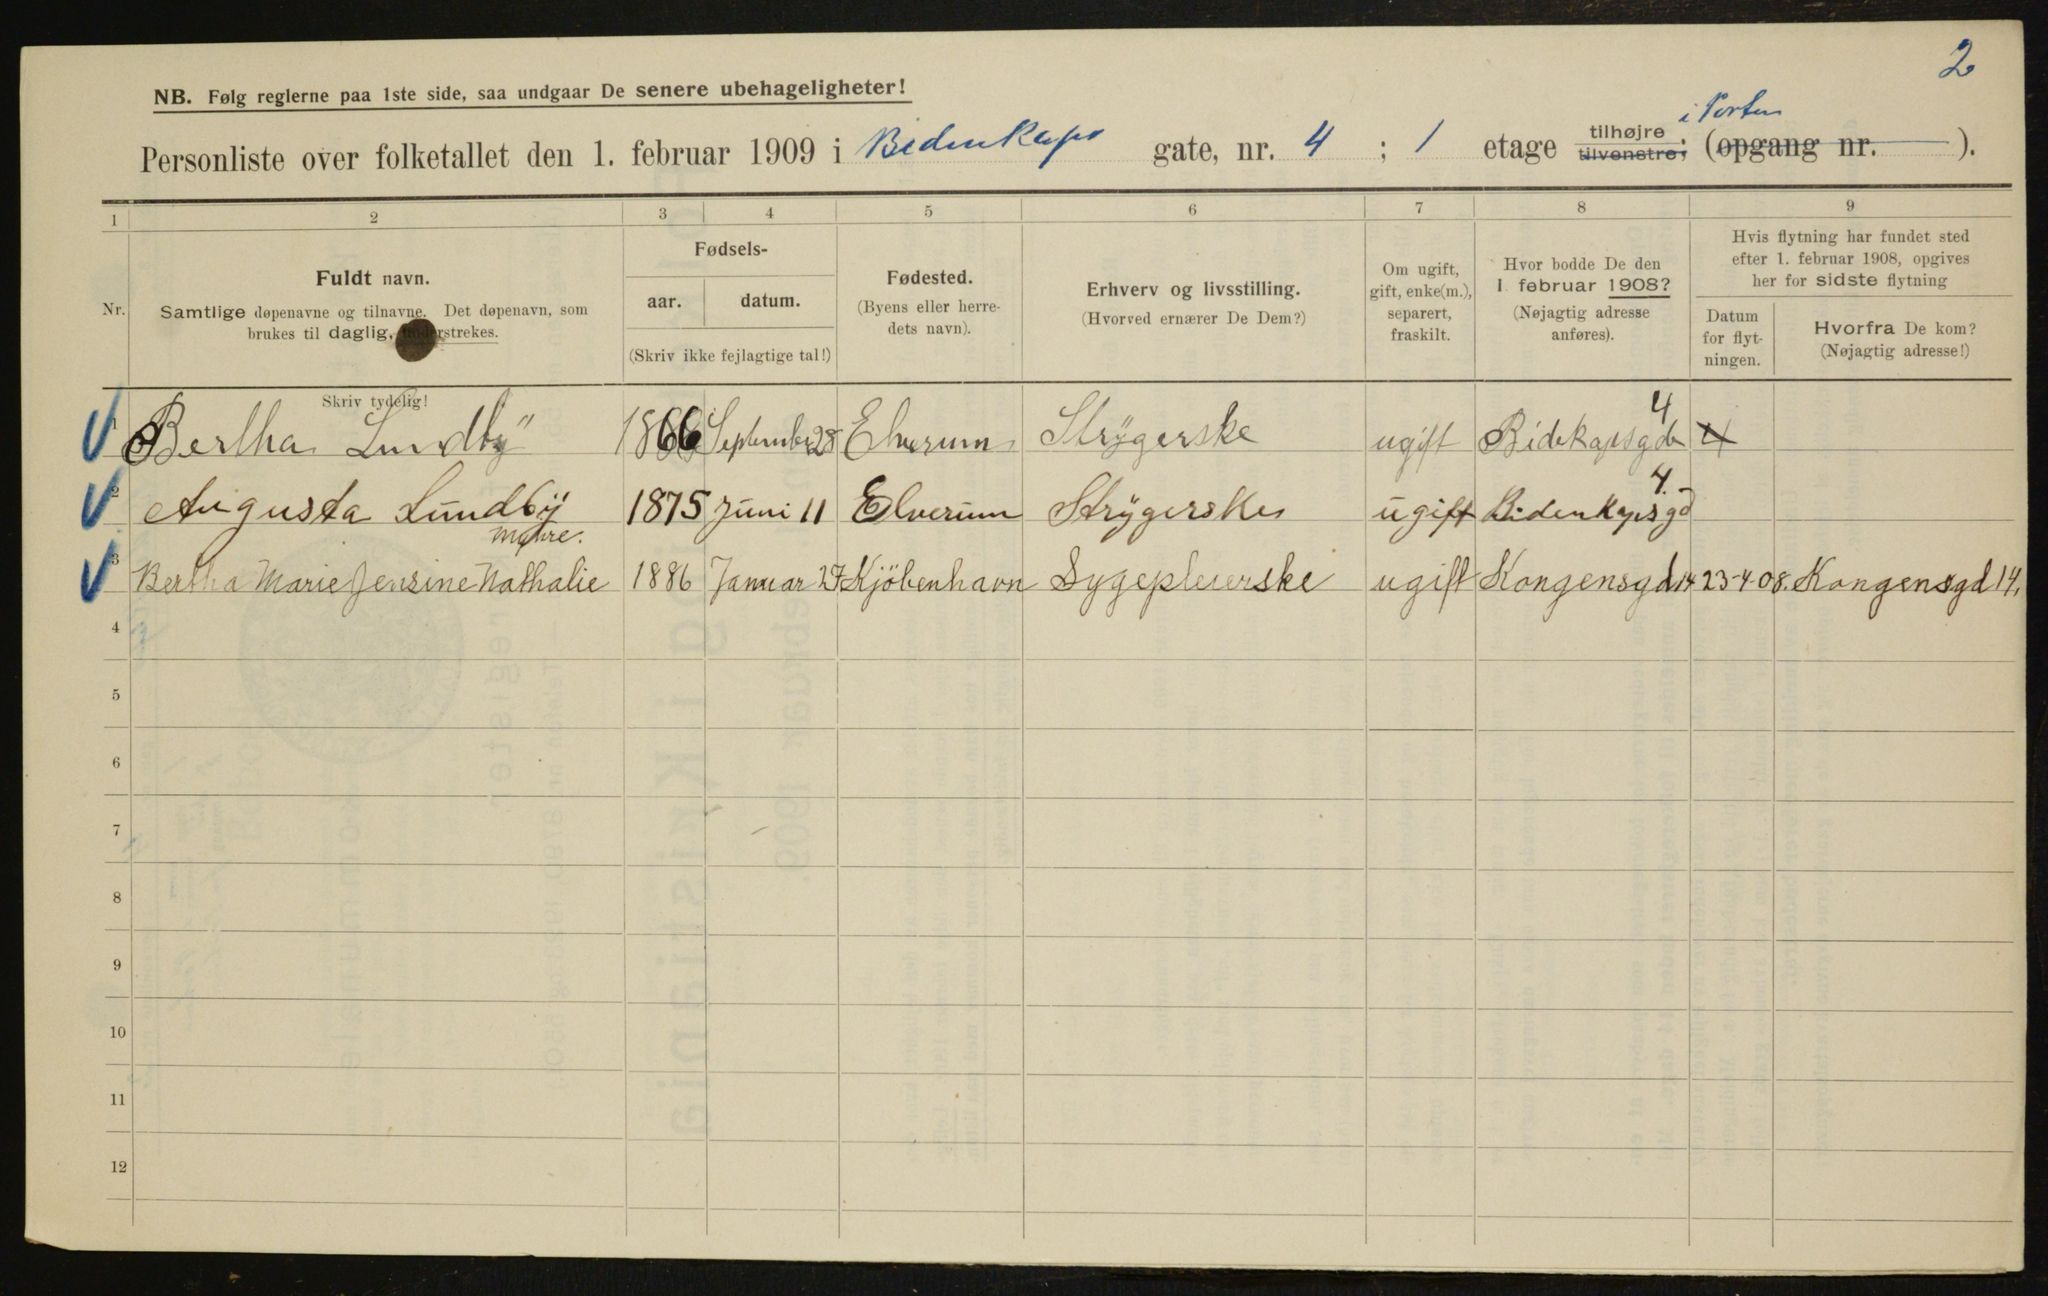 2
NB. Følg reglerne paa 1ste side, saa undgaar De senere ubehageligheter!
i Porten
Personliste over folketallet den 1. februar 1909 i Bidenkaps gate, nr. 4 ; 1 etage tilhøjre tilvenstre; (opgang nr. ).
1 2 3 4 5 6 7 8 9
Nr.
Fuldt navn.
Samtlige døpenavne og tilnavne. Det døpenavn, som
brukes til daglig, understrekes.
Skriv tydelig!
Fødsels-
aar. datum.
(Skriv ikke fejlagtige tal!)
Fødested.
(Byens eller herre-
dets navn).
Erhverv og livsstilling.
(Hvorved ernærer De Dem?)
Om ugift,
gift, enke(m.),
separert,
fraskilt.
Hvor bodde De den
1. februar 1908?
(Nøjagtig adresse
anføres).
Hvis flytning har fundet sted
efter 1. februar 1908, opgives
her for sidste flytning
Datum
for flyt-
ningen.
Hvorfra De kom?
(Nøjagtig adresse!)
1 Bertha Lundbÿ 1866 September 28 Elverum Strÿgerske ugift Bidekapsgde 4 4
2 Augusta Lundbÿ 1875 Juni 11 Elverum Strÿgerske ugift Bidenkapsgd 4.
3 Bertha Marie Jensine Nathalie 1886 Januar 27 Kjöbenhavn Sygepleierske ugift Kongensgd 14 23-4-08. Kongensgd 14.
4
5
6
7
8
9
10
11
12